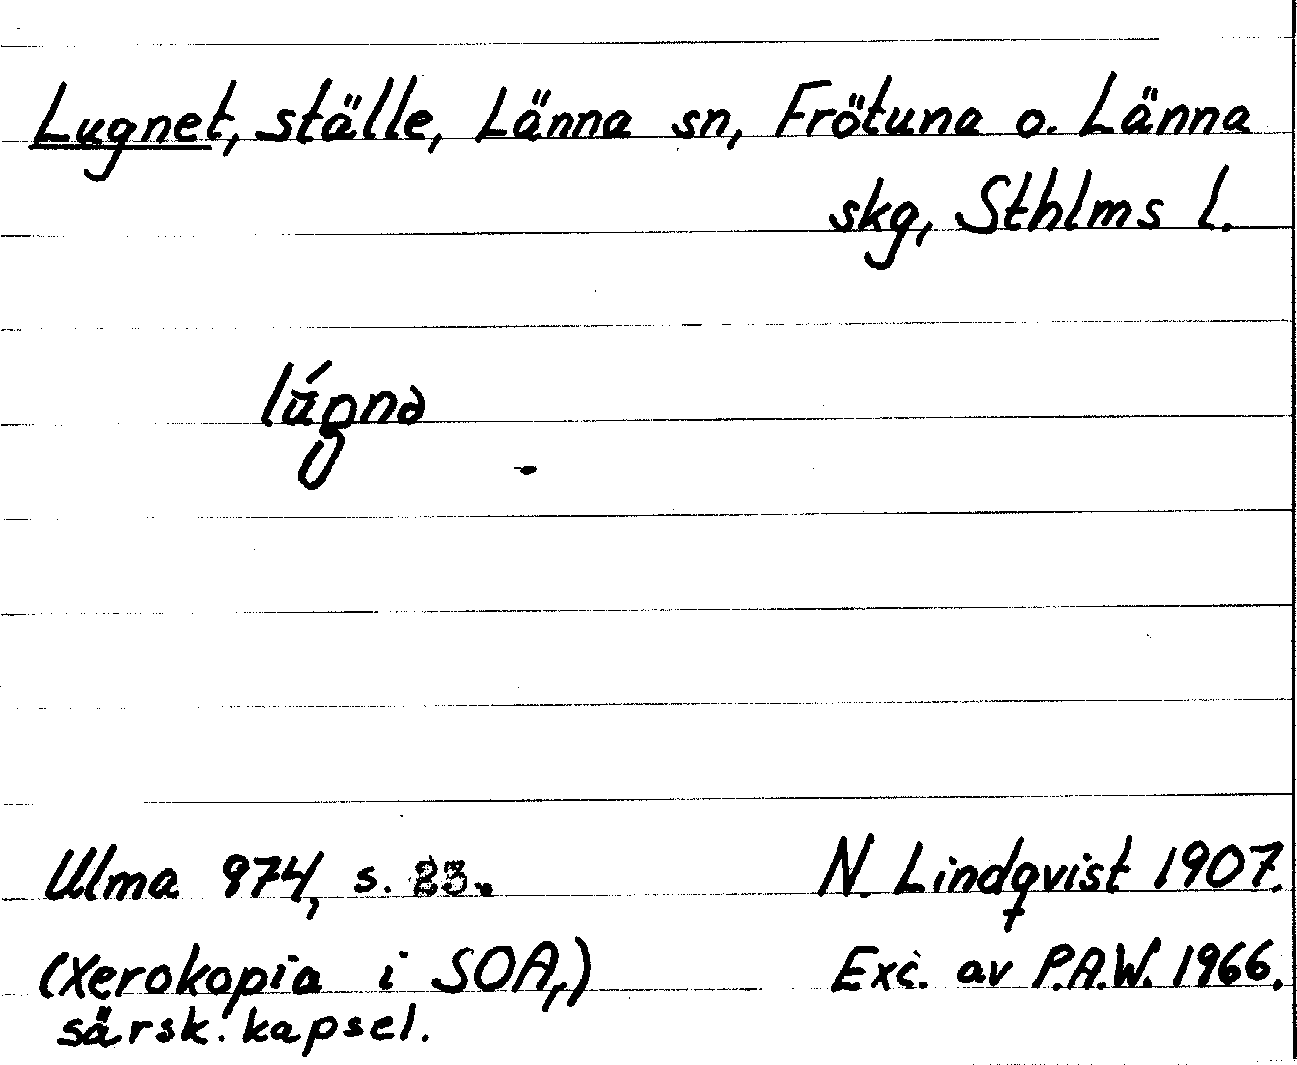 Lugnet, ställe, Länna sn, Frötuna o. Länna
skg, Sthlms l.
lúgnə
Ulma 974, s. 23.
N. Lindqvist 1907.
(Xerokopia i SOA,)
Exc. av P.A.W. 1966.
särsk. kapsel.